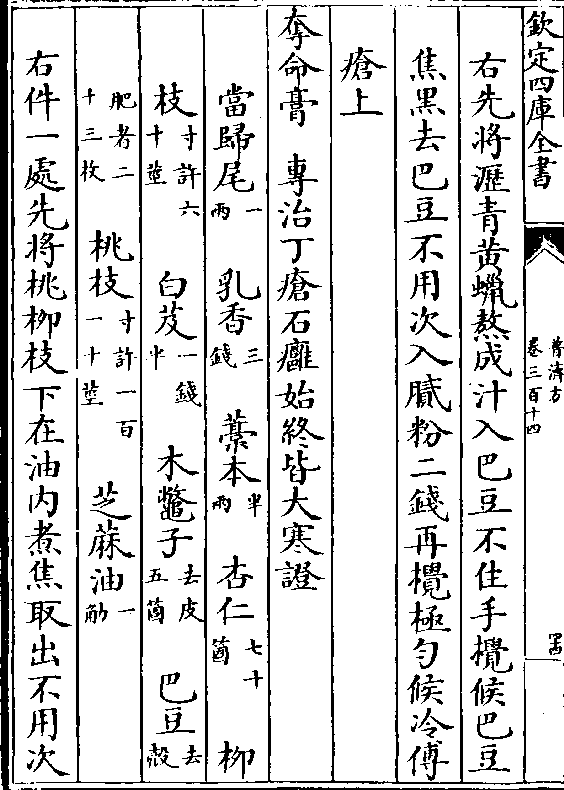 欽定四庫全書
普濟方
卷三百十四
右先將瀝青黄蠟熬成汁入巴豆不住手攪候巴豆
焦黑去巴豆不用次入膩粉二錢再攪極勻候冷傅
瘡上
奪命膏 專治丁瘡石癰始終皆大寒證
當歸尾一兩 乳香三錢 藁本半兩 杏仁七十箇 柳
枝寸許六十莖 白芨一錢半 木鱉子去皮五箇 巴豆去殼
肥者二十三枚 桃枝寸許一百一十莖 芝蔴油一觔
右件一處先將桃柳枝下在油内煮焦取出不用次